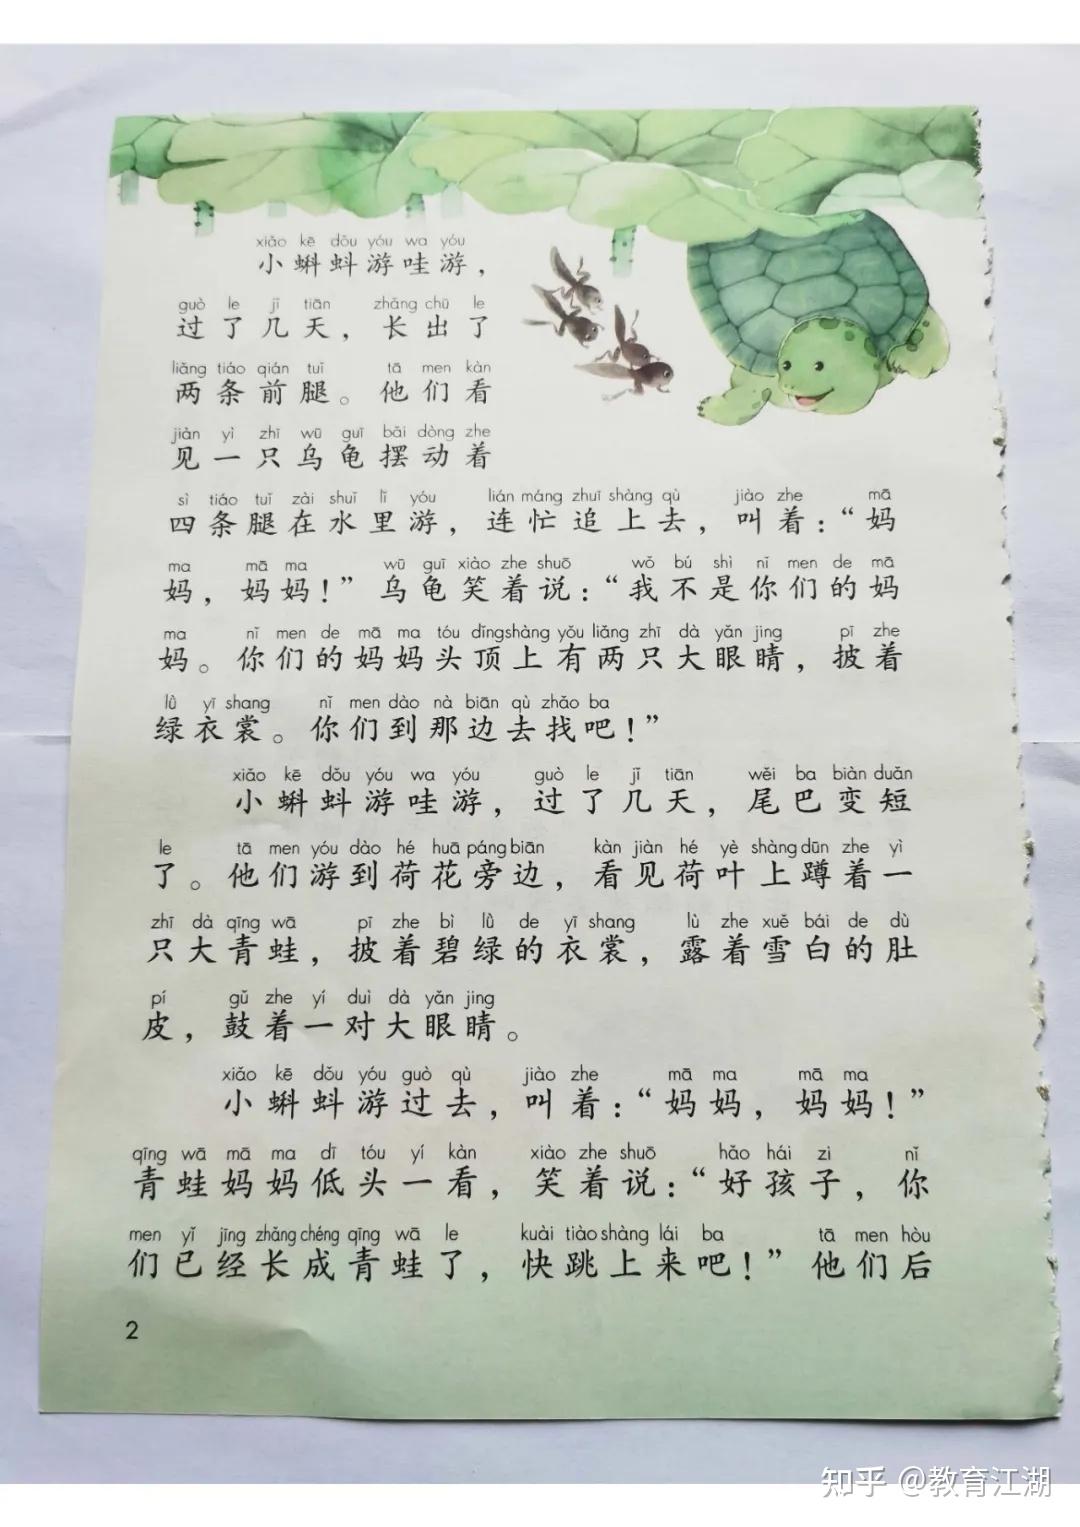 xiǎo kē dǒu yóu wa yóu
小蝌蚪游哇游，
guò le jǐ tiān zhǎng chū le
过了几天，长出了
liǎng tiáo qián tuǐ tā men kàn
两条前腿。他们看
jiàn yì zhī wū guī bǎi dòng zhe
见一只乌龟摆动着
sì tiáo tuǐ zài shuǐ lǐ yóu lián máng zhuī shàng qù jiào zhe mā
四条腿在水里游，连忙追上去，叫着：“妈
ma mā ma wū guī xiào zhe shuō wǒ bú shì nǐ men de mā
妈，妈妈！”乌龟笑着说：“我不是你们的妈
ma nǐ men de mā ma tóu dǐng shàng yǒu liǎng zhī dà yǎn jing pī zhe
妈。你们的妈妈头顶上有两只大眼睛，披着
lǜ yī shang nǐ men dào nà biān qù zhǎo ba
绿衣裳。你们到那边去找吧！”
xiǎo kē dǒu yóu wa yóu guò le jǐ tiān wěi ba biàn duǎn
小蝌蚪游哇游，过了几天，尾巴变短
le tā men yóu dào hé huā páng biān kàn jiàn hé yè shàng dūn zhe yì
了。他们游到荷花旁边，看见荷叶上蹲着一
zhī dà qīng wā pī zhe bì lǜ de yī shang lù zhe xuě bái de dù
只大青蛙，披着碧绿的衣裳，露着雪白的肚
pí gǔ zhe yí duì dà yǎn jing
皮，鼓着一对大眼睛。
xiǎo kē dǒu yóu guò qù jiào zhe mā ma mā ma
小蝌蚪游过去，叫着：“妈妈，妈妈！”
qīng wā mā ma dī tóu yí kàn xiào zhe shuō hǎo hái zi nǐ
青蛙妈妈低头一看，笑着说：“好孩子，你
men yǐ jīng zhǎng chéng qīng wā le kuài tiào shàng lái ba tā men hòu
们已经长成青蛙了，快跳上来吧！”他们后
2
知乎 @教育江湖